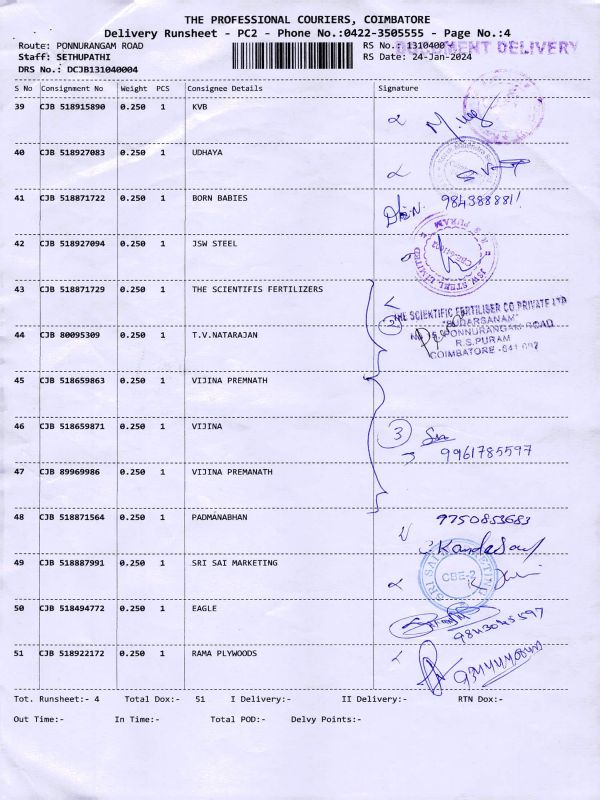 THE PROFESSIONAL COURIERS, COIMBATORE
Delivery Runsheet - PC2 - Phone No.:0422-3505555 - Page No.:4
Route: PONNURANGAM ROAD
RS No.: 1310400
DOCUMENT DELIVERY
Staff: SETHUPATHI
RS Date: 24-Jan-2024
DRS No.: DCJB131040004
S No Consignment No Weight PCS Consignee Details Signature
39 CJB 518915890 0.250 1 KVB
40 CJB 518927083 0.250 1 UDHAYA
41 CJB 518871722 0.250 1 BORN BABIES
42 CJB 518927094 0.250 1 JSW STEEL
JSW STEEL LIMITED
R.S. PURAM
43 CJB 518871729 0.250 1 THE SCIENTIFIS FERTILIZERS
THE SCIENTIFIC FERTILISER CO PRIVATE LTD
"SUDARSANAM"
44 CJB 80095309 0.250 1 T.V.NATARAJAN
PONNURANGAM ROAD
R.S.PURAM
COIMBATORE
45 CJB 518659863 0.250 1 VIJINA PREMNATH
46 CJB 518659871 0.250 1 VIJINA
3
9961785597
47 CJB 89969986 0.250 1 VIJINA PREMANATH
48 CJB 518871564 0.250 1 PADMANABHAN
9750853683
49 CJB 518887991 0.250 1 SRI SAI MARKETING
SRI SAI MARKETING
CBE-2
50 CJB 518494772 0.250 1 EAGLE
9843045597
51 CJB 518922172 0.250 1 RAMA PLYWOODS
Tot. Runsheet:- 4 Total Dox:- 51 I Delivery:- II Delivery:- RTN Dox:-
Out Time:- In Time:- Total POD:- Delvy Points:-